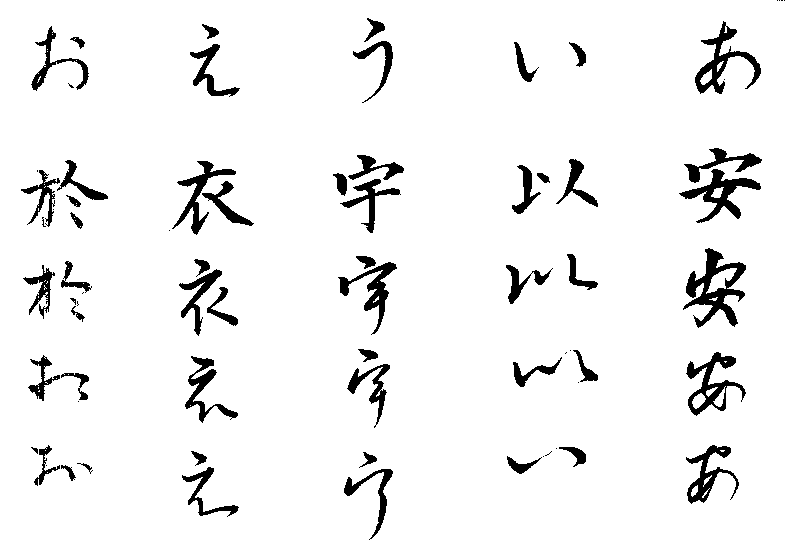 あ安安安あ
い以以以い
う宇宇宇う
え衣衣衣え
お於於於お